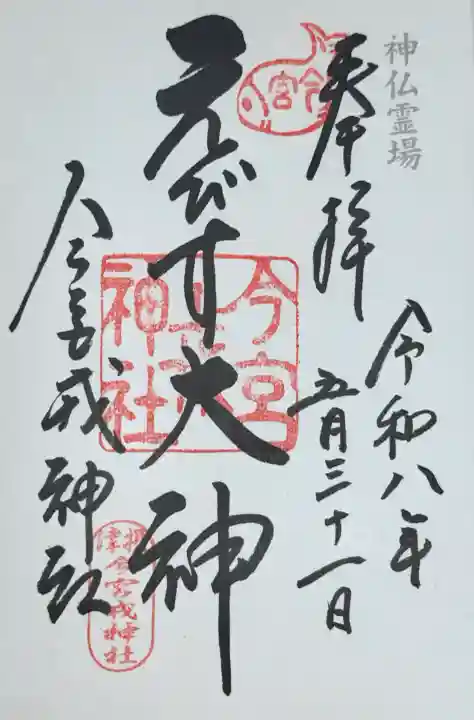 神仏霊場
奉拝
令和八年
五月三十一日
えびす大神
今宮戎神社
今宮
今宮戎神社
摂津
今宮戎神社